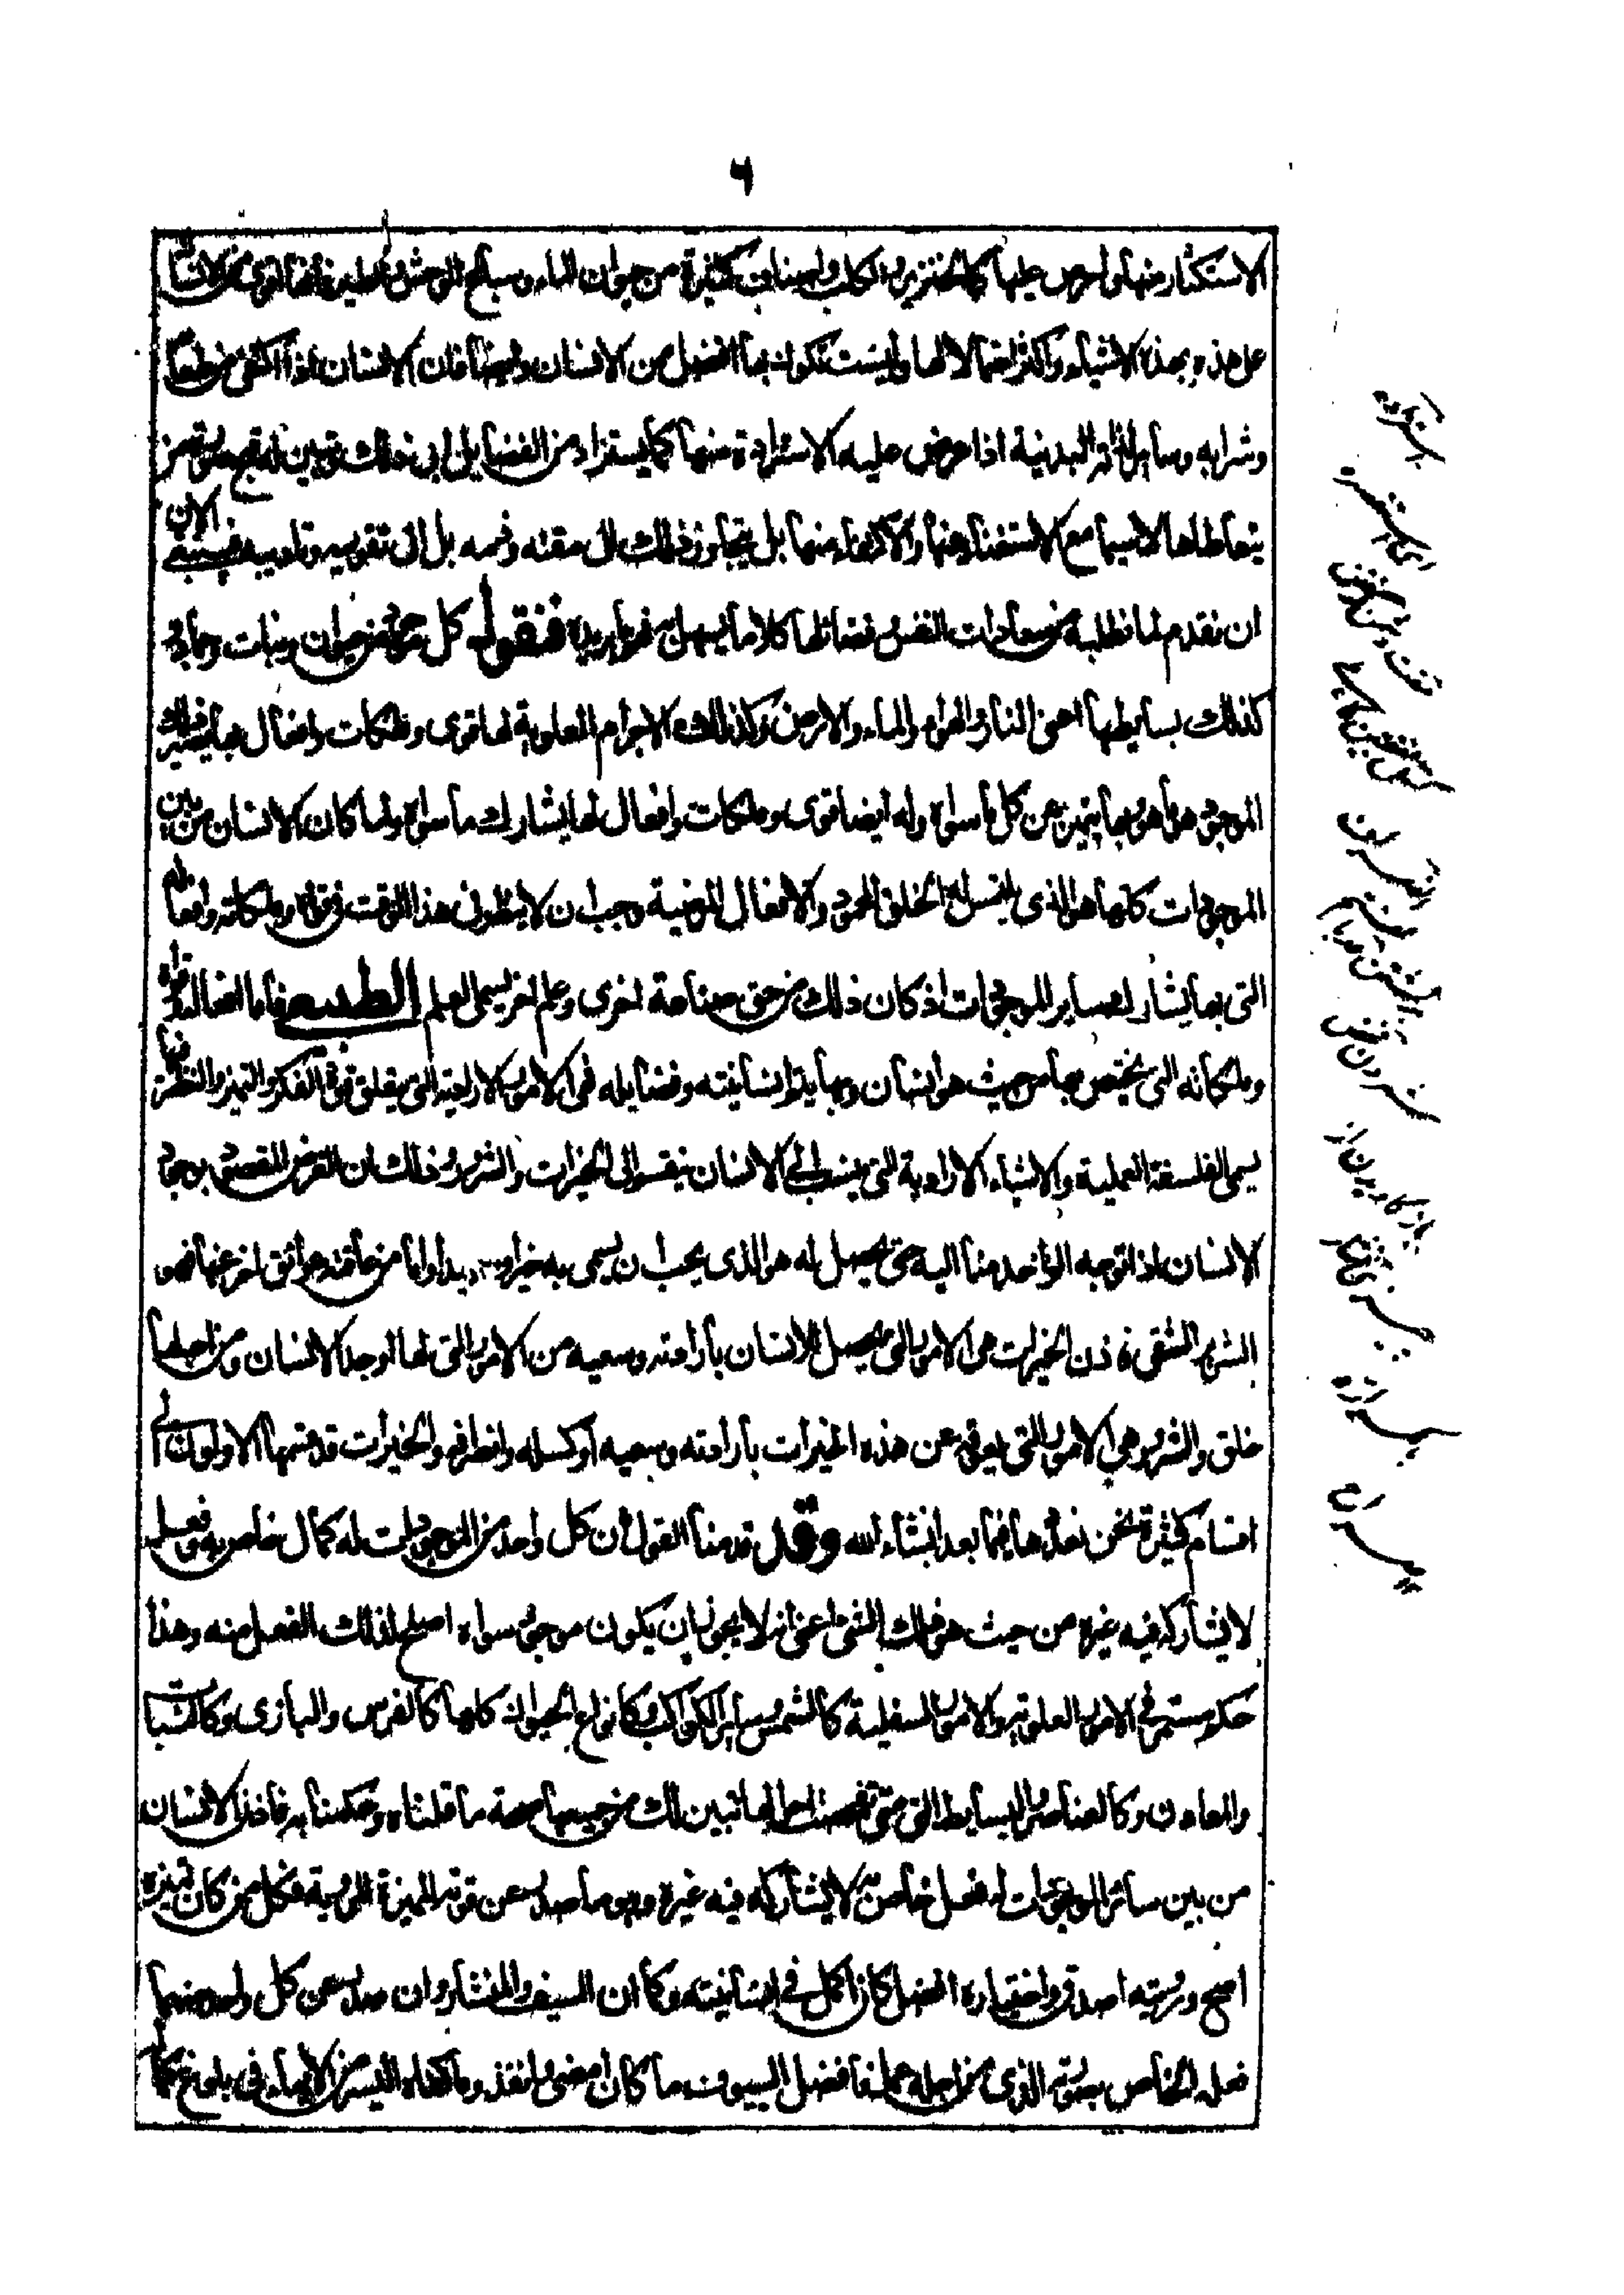 ٦
الاستكثار منها والحرص عليها كالخنزير والكلب واصناف كثيرة من حيوان الماء وسباع الوحش والطير فانها اقوى من الانسان
على هذه وبهذه الاشياء واكثر احتمالا لها وليست تكون بها افضل من الانسان وايضا فان الانسان اذا اكتفى من طعامه
وشرابه وسائر لذاته البدنية اذا عرض عليه الاستزادة منها كما يستزاد من الفضايل ابى ذلك وتبين له قبح صورة من
يتعاطاها لاسيما مع الاستغناء عنها والاكتفاء منها بل يتجاوز ذلك الى مقته وذمه بل الى تقويمه وتاديبه فينبغي الان
ان نقدم لما نطلبه من سعادات النفس وفضائلها كلاما يسهل به فهم ما نريده فنقول كل موجود من حيوان ونبات وجماد و
كذلك بسايطها اعنى النار والهواء والماء والارض وكذلك الاجرام العلوية لها قوى وملكات وافعال بها يصير ذلك
الموجود هو ما هو وبها يتميز عن كل ما سواه وله ايضا قوى وملكات وافعال لها يشارك ما سواه ولما كان الانسان من بين
الموجودات كلها هو الذى يلتمس له الخلق المحمود والافعال المرضية وجب ان لا ينظر فى هذا الوقت فى قواه وملكاته وافعاله
التى بها يشارك سائر الموجودات اذ كان ذلك من حق صناعة اخرى وعلم اخر يسمى العلم الطبيعى فاما افعاله وقواه
وملكاته التى يختص بها من حيث هو انسان وبها يتم انسانيته وفضايله فهى الامور الارادية التى بها يتعلق قوة الفكر والتميز والنظر فيها
يسمى الفلسفة العملية والاشياء الارادية التى ينسب الى الانسان ينقسم الى الخيرات والشرور وذلك ان الغرض المقصود بوجود
الانسان اذا توجه الواحد منا اليه حتى يحصل له هو الذى يجب ان يسمى به خيرا وسعيدا واما من عاقته عوائق اخر عنها فهو
الشرير الشقى فاذن الخيرات هى الامور التى يحصل للانسان بارادته وسعيه من الامور التى لها اوجد الانسان ومن اجلها
خلق والشرور هى الامور التى يعوق عن هذه الخيرات بارادته وسعيه او كسله وانصرافه والخيرات قد قسمها الاولون الى
اقسام كثيرة نحن نعدها فيما بعد انشاء الله وقد قدمنا القول ان كل واحد من الموجودات له كمال خاص به وفعل
لا يشاركه فيه غيره من حيث هو ذلك الشئ اعنى انه لا يجوز ان يكون موجود سواه اصلح لذلك الفعل منه وهذا
حكم مستمر فى الامور العلوية والامور السفلية كالشمس وسائر الكواكب وكانواع الحيوان كلها كالفرس والبازى وكالنبات
والمعادن وكالعناصر البسايط التى متى تصفحت احوالها تبين لك من جميعها صحة ما قلناه وحكمنا به فاذن الانسان
من بين سائر الموجودات له فعل خاص به لا يشاركه فيه غيره وهو ما صدر عن قوته المميزة المروية فكل من كان تميزه
اصح ورويته اصدق واختياره افضل كان اكمل فى انسانيته وكما ان السيف والمنشار وان صدر عن كل واحد منهما
فعله الخاص بصورته الذى من اجله عمل فافضل السيوف ما كان امضى وانفذ وما كفاه اليسير من الايماء فى بلوغ كماله